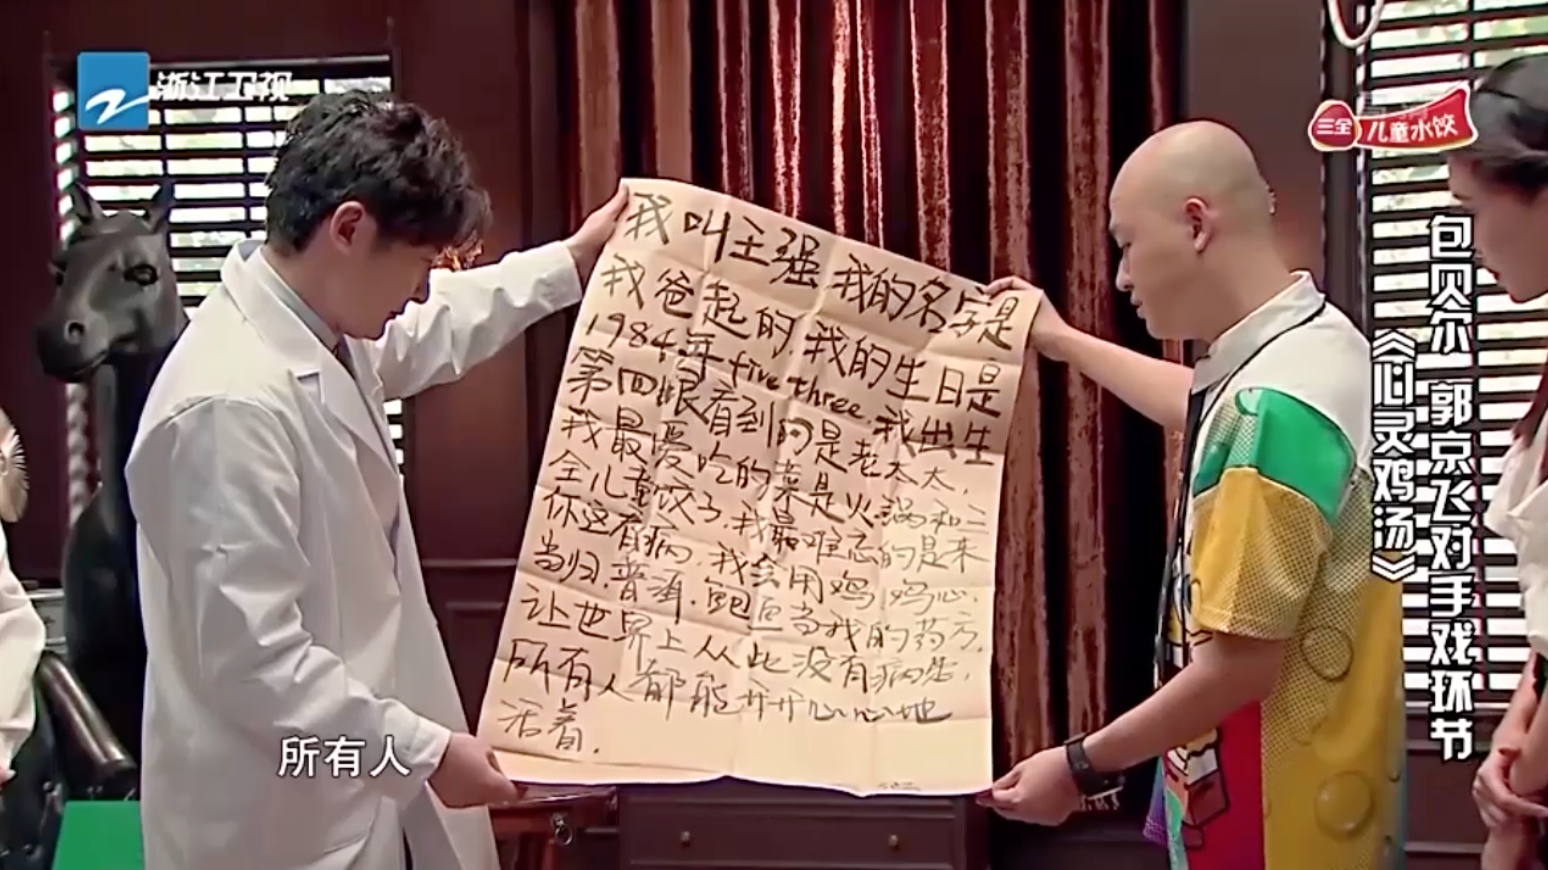 浙江卫视
三全 儿童水饺
我叫王强 我的名字是
我爸起的,我的生日是
1984年five three.我出生
第四眼看到的是老太太,
我最爱吃的菜是火锅和三
全儿童饺子.我最难忘的是来
你这看病,我会用鸡 鸡心.
当归.普洱.鲍鱼当我的药方,
让世界上从此没有病患,
所有人都能开开心心地
活着.
包贝尔 郭京飞对手戏环节
《心灵鸡汤》
所有人